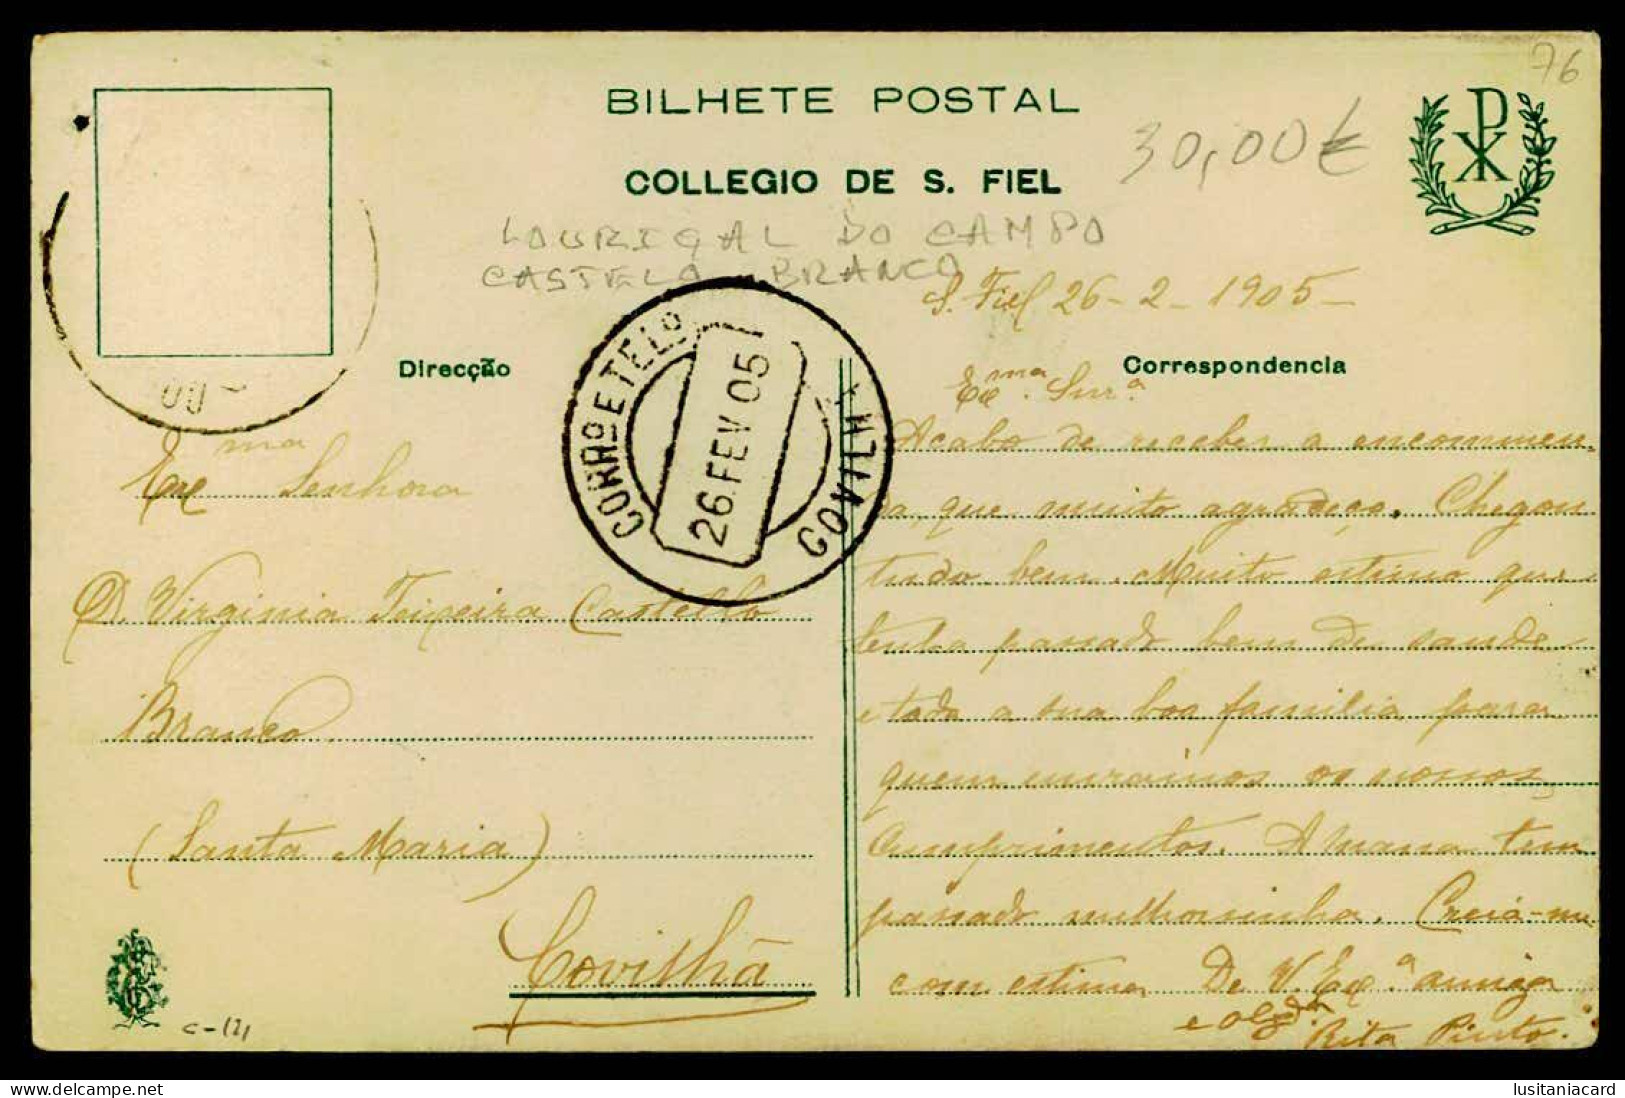 76
BILHETE POSTAL
30,00€
COLLEGIO DE S. FIEL
LOURIÇAL DO CAMPO
CASTELO BRANCO
S. Fiel 26-2-1905-
Direcção
Correspondencia
CORRº E TELº
26.FEV 05
COVILHÃ
Exma Senhora
D. Virginia Teixeira Castello
Branco
(Santa Maria)
Covilhã
Exma. Snra.
Acabo de receber a encommen
da, que muito agradeço. Chegou
tudo bem. Muito estimo que
tenha passado bem de saude
e toda a sua boa familia para
quem enviamos os nossos
cumprimentos. A mana tem
passado melhorsinha. Creia-me
com estima De V. Exª amiga
e obgda
Rita Pinto.
C-121
lusitaniacard